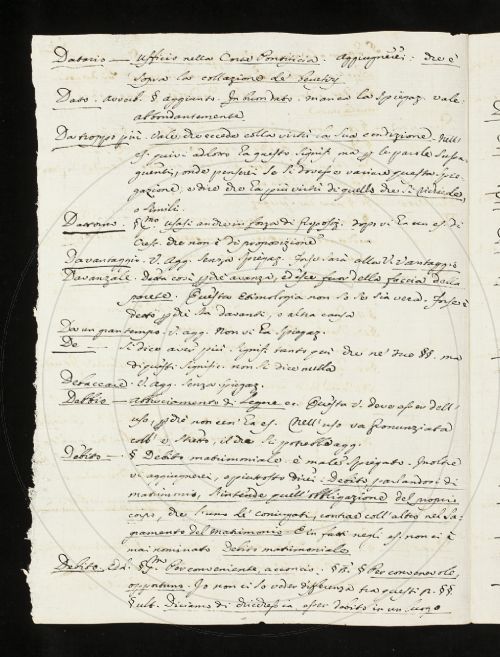 Datario — Ufficio nella Corte Pontificia. Aggiugnerei: che è
sopra la collazione de' Benefizj
Dato. avverb. § aggiunto. In buondato. manca la spiegaz. vale
abbondantemente
Da troppo più. Vale che eccede colla virtù la sua condizione. Nell'
es. quivi addotto ha questo signif. ma le parole susse-
guenti, onde penserei se si dovesse variare questa spie-
gazione, e dire che ha più virtù di quello che si
o simili
§ usasi anche in forza di dopo vi ha un es. di
Cres. che non è di proposizione
Davantaggio. V. Agg. senza spiegaz. Forse sarà alla V. Vantaggio
Davanzale. Detta così avanza, ed esce fuor della faccia della
parete. Questa Etimologia non so se sia vera. Forse è
detto da davanti, o altra cosa
Da un gran tempo. V. agg. Non vi ha spiegaz.
De — Si dice aver più signif. tanto qui che ne' due §§. ma
di questi signific. non si dice nulla
V. Agg. senza spiegaz.
Debbio — Abbruciamento di legne ec. Questa V. deve esser dell'
uso, non ha es. Nell'uso va pronunziata
coll' e stretto, il che si potrebbe agg.
Debito — § Debito matrimoniale. è male spiegato. Inoltre
vi aggiugnerei, e piuttosto direi: Debito parlandosi di
matrimonio, s'intende quell' obbligazione del proprio
corpo, che l'uno de' coniugati, contrae coll' altro nel Sa-
gramento del Matrimonio. E in fatti negli es. non ci è
mai nominato Debito matrimoniale
Debito. Per conveniente, acconcio. § Per convenevole,
opportuno. Io non ci so veder differenza tra questi §§
§ ult. Diciamo di chicchessia, esser debito in un luogo